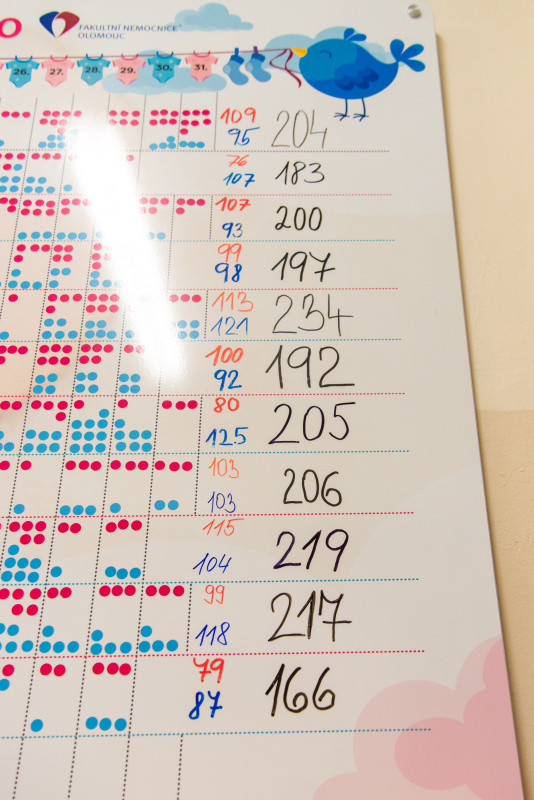 O
FAKULTNÍ NEMOCNICE
OLOMOUC
26. 27. 28. 29. 30. 31.
109
95 204
76
107 183
107
93 200
99
98 197
113
121 234
100
92 192
80
125 205
103
103 206
115
104 219
99
118 217
79
87 166